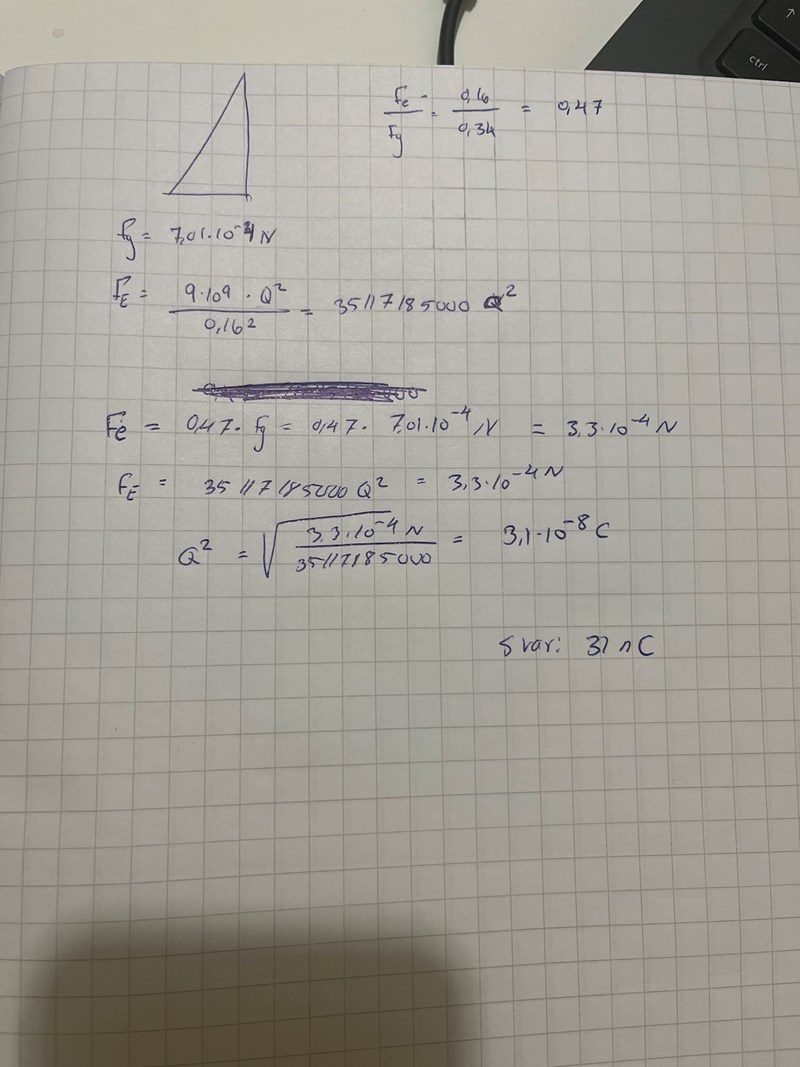 ctrl
Fe / Fg = 0,16 / 0,34 = 0,47
Fg = 7,01·10⁻⁴ N
FE = 9·10⁹ · Q² / 0,16² = 35117185000 Q²
Fe = 0,47 · Fg = 0,47 · 7,01·10⁻⁴ N = 3,3·10⁻⁴ N
FE = 35117185000 Q² = 3,3·10⁻⁴ N
Q² = √(3,3·10⁻⁴ N / 35117185000) = 3,1·10⁻⁸ C
Svar: 31 nC